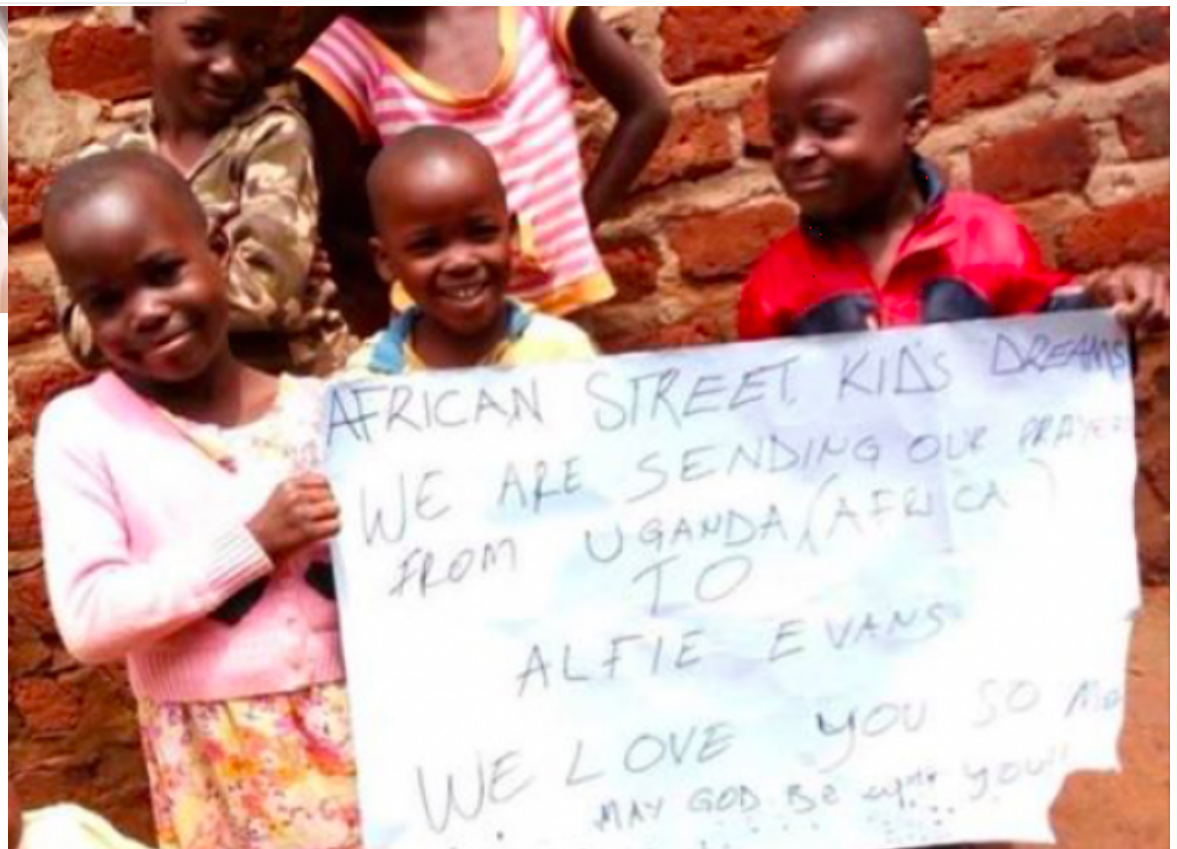 AFRICAN STREET KIDS DREAMS
WE ARE SENDING OUR PRAYER
FROM UGANDA, (AFRICA)
TO
ALFIE EVANS
WE LOVE YOU SO
MAY GOD BE YOU"